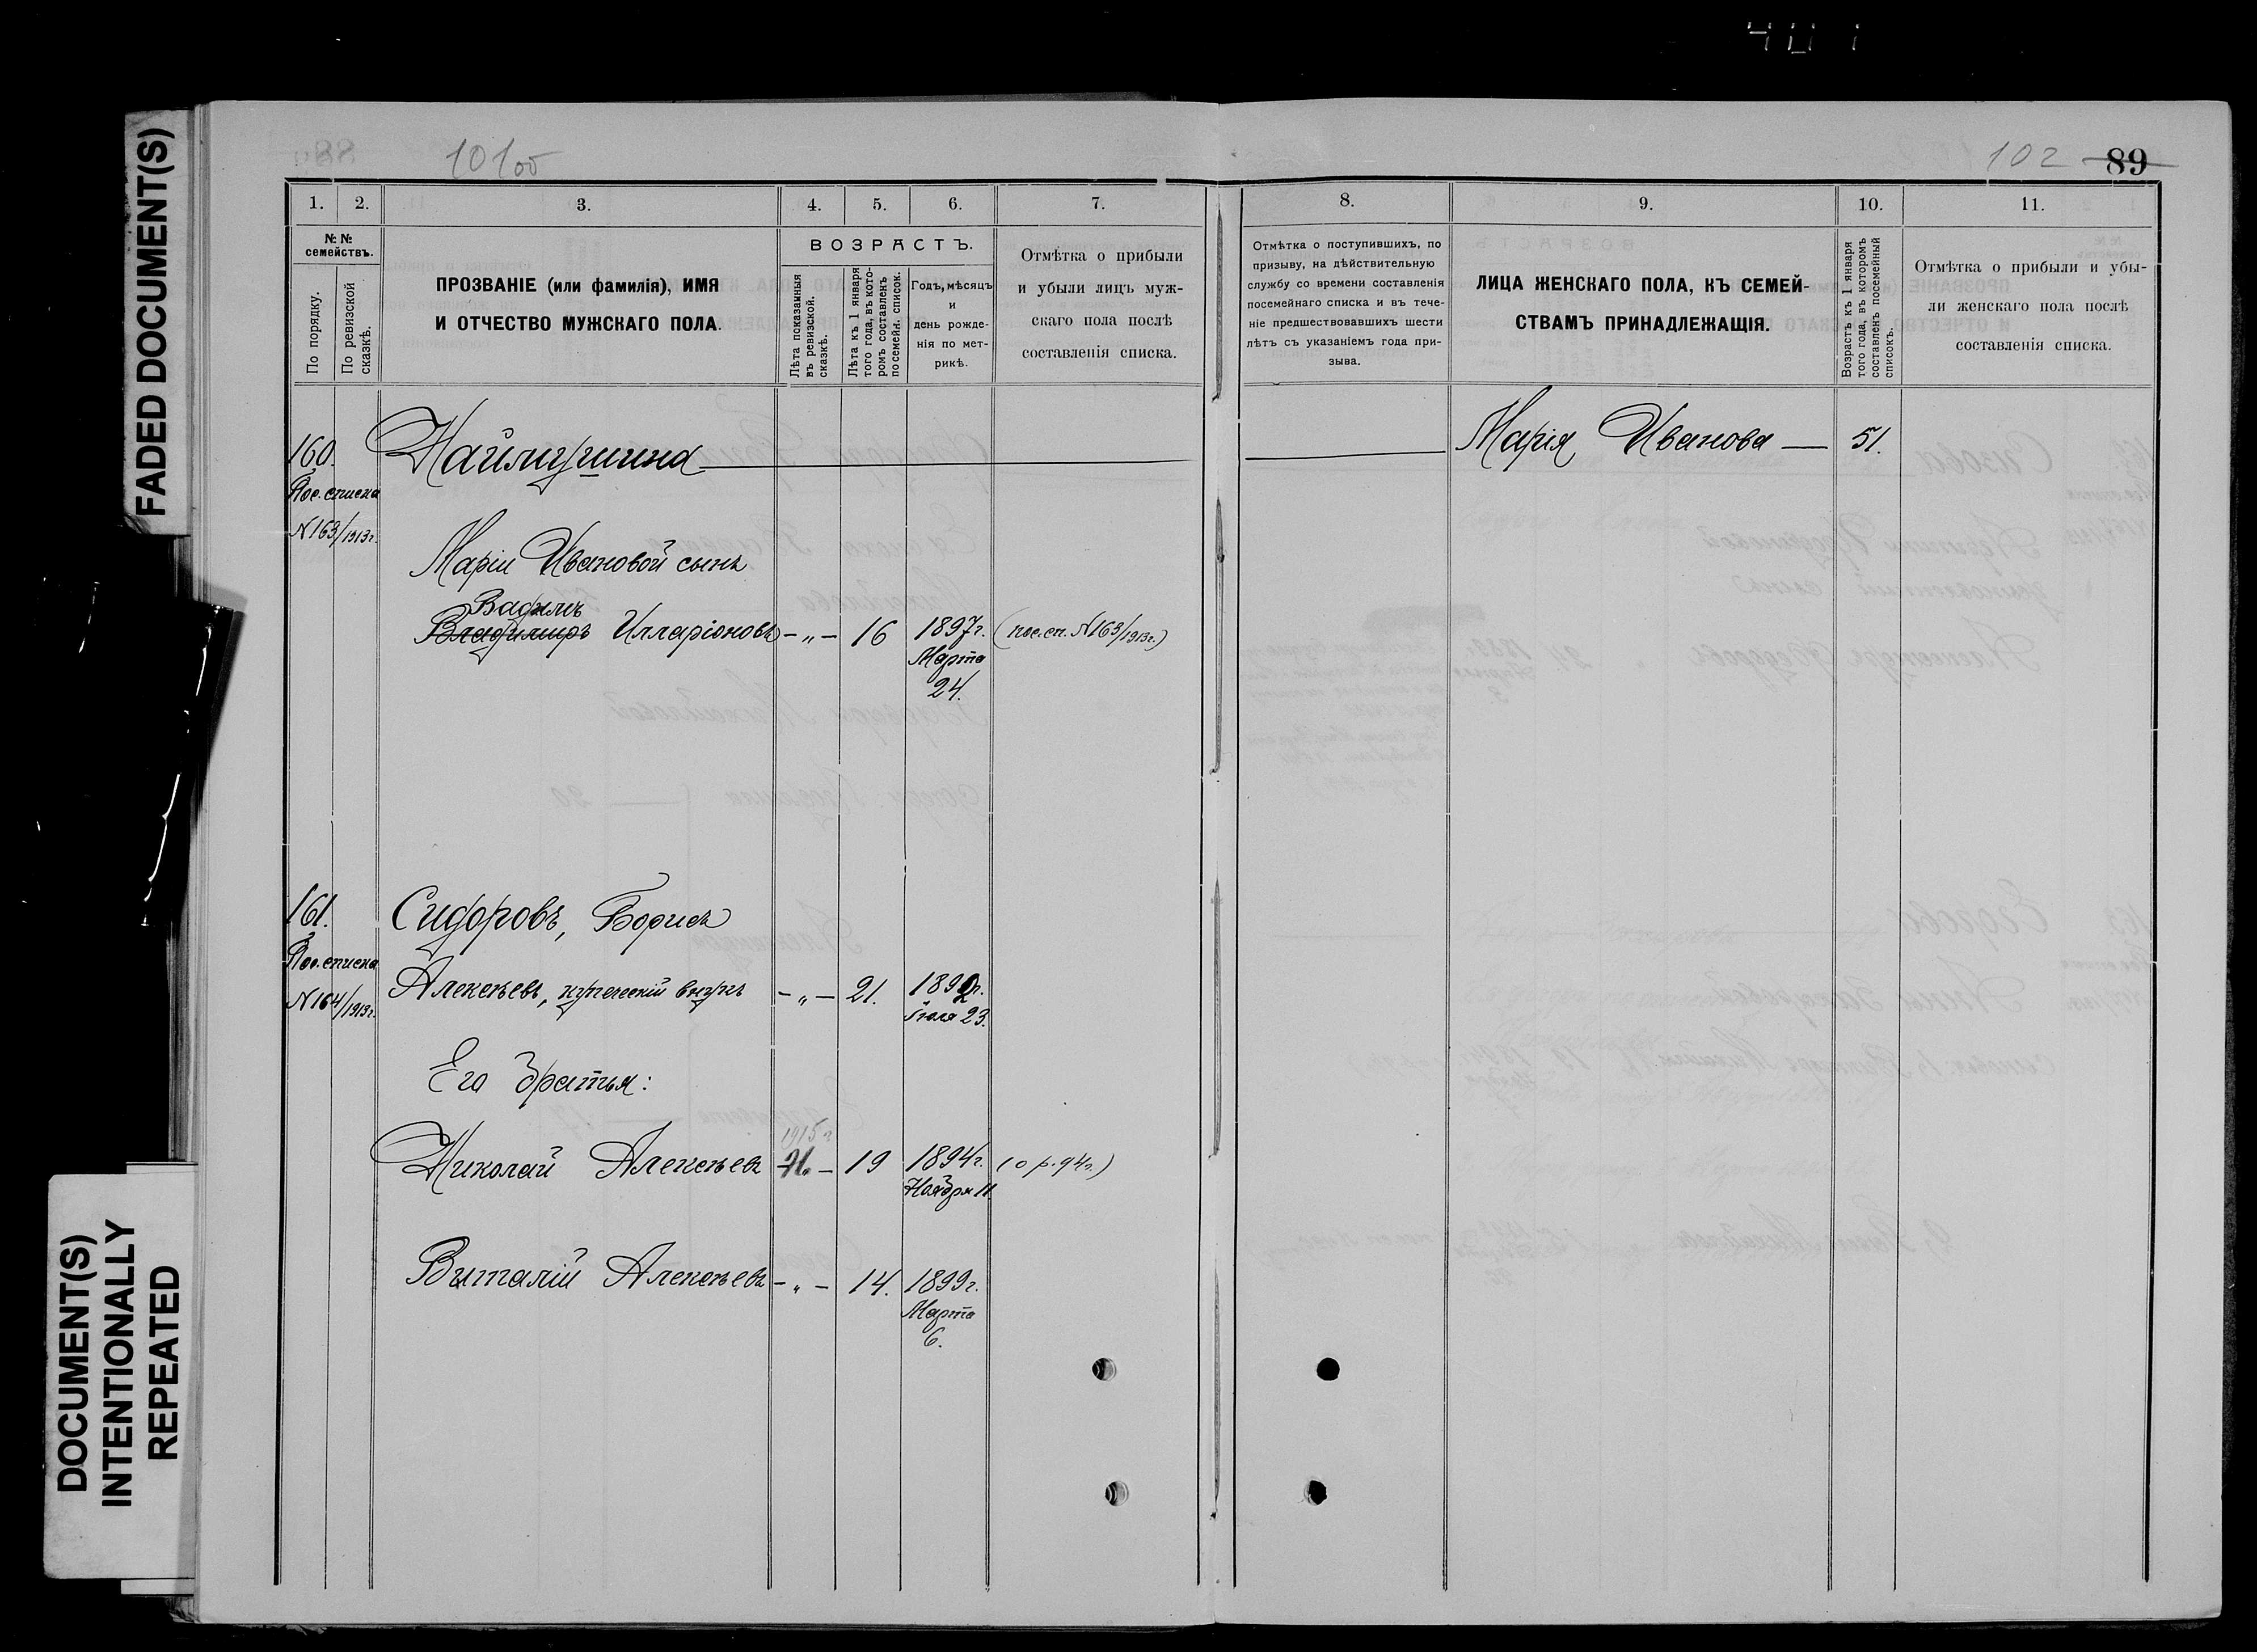 FADED DOCUMENT(S)
DOCUMENT(S)
INTENTIONALLY
REPEATED
101об
102 89
1. 2. 3. 4. 5. 6. 7.
№ №
семействъ.
По порядку.
По ревизской
сказкѣ.
ПРОЗВАНІЕ (или фамилія), ИМЯ
И ОТЧЕСТВО МУЖСКАГО ПОЛА.
ВОЗРАСТЪ.
Лѣта показанныя
въ ревизской.
сказкѣ.
Лѣта къ 1 января
того года, въ кото-
ромъ составленъ
посемейн. список.
Годъ, мѣсяцъ
и
день рожде-
нія по мет-
рикѣ.
Отмѣтка о прибыли
и убыли лицъ муж-
скаго пола послѣ
составленія списка.
8. 9. 10. 11.
Отмѣтка о поступившихъ, по
призыву, на дѣйствительную
службу со времени составленія
посемейнаго списка и въ тече-
ніе предшествовавшихъ шести
лѣтъ съ указаніемъ года при-
зыва.
ЛИЦА ЖЕНСКАГО ПОЛА, КЪ СЕМЕЙ-
СТВАМЪ ПРИНАДЛЕЖАЩІЯ.
Возрастъ къ 1 января
того года, въ которомъ
составленъ посемейный
списокъ.
Отмѣтка о прибыли и убы-
ли женскаго пола послѣ
составленія списка.
160. Наймушина Марія Иванова — 51.
Пос. списка
№163/1913г.
Маріи Ивановой сынъ
Вадимъ
Владимиръ Илларіоновъ -„- 16 1897г. (пос. сп. №163/1913г.)
Марта
24.
161. Сидоровъ, Борисъ
Пос. списка
№164/1913г. Алексѣевъ, купеческій внукъ -„- 21. 1892г.
Іюля 23.
Его братья:
1915г
Николай Алексѣевъ 19 1894г. (о р. 94г.)
Ноября 11
Виталій Алексѣевъ -„- 14. 1899г.
Марта
6.